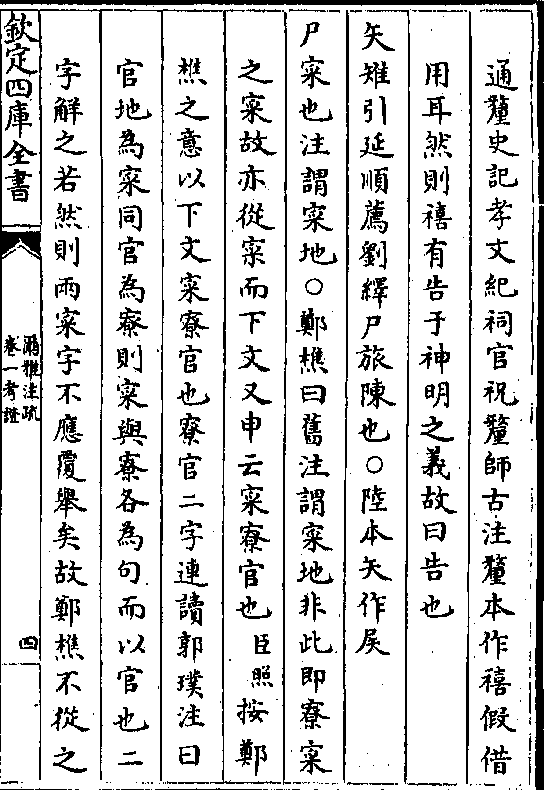 通釐史記孝文紀祠官祝釐師古注釐本作禧假借
用耳然則禧有告于神明之義故曰告也
矢雉引延順薦劉繹尸旅陳也○陸本矢作𡱁
尸寀也注謂寀地○鄭樵曰舊注謂寀地非此即寮寀
之寀故亦從寀而下文又申云寀寮官也臣照按鄭
樵之意以下文寀寮官也寮官二字連讀郭璞注曰
官地為寀同官為寮則寀與寮各為句而以官也二
字解之若然則兩寀字不應覆舉矣故鄭樵不從之
欽定四庫全書
爾雅注疏
卷一考證
四